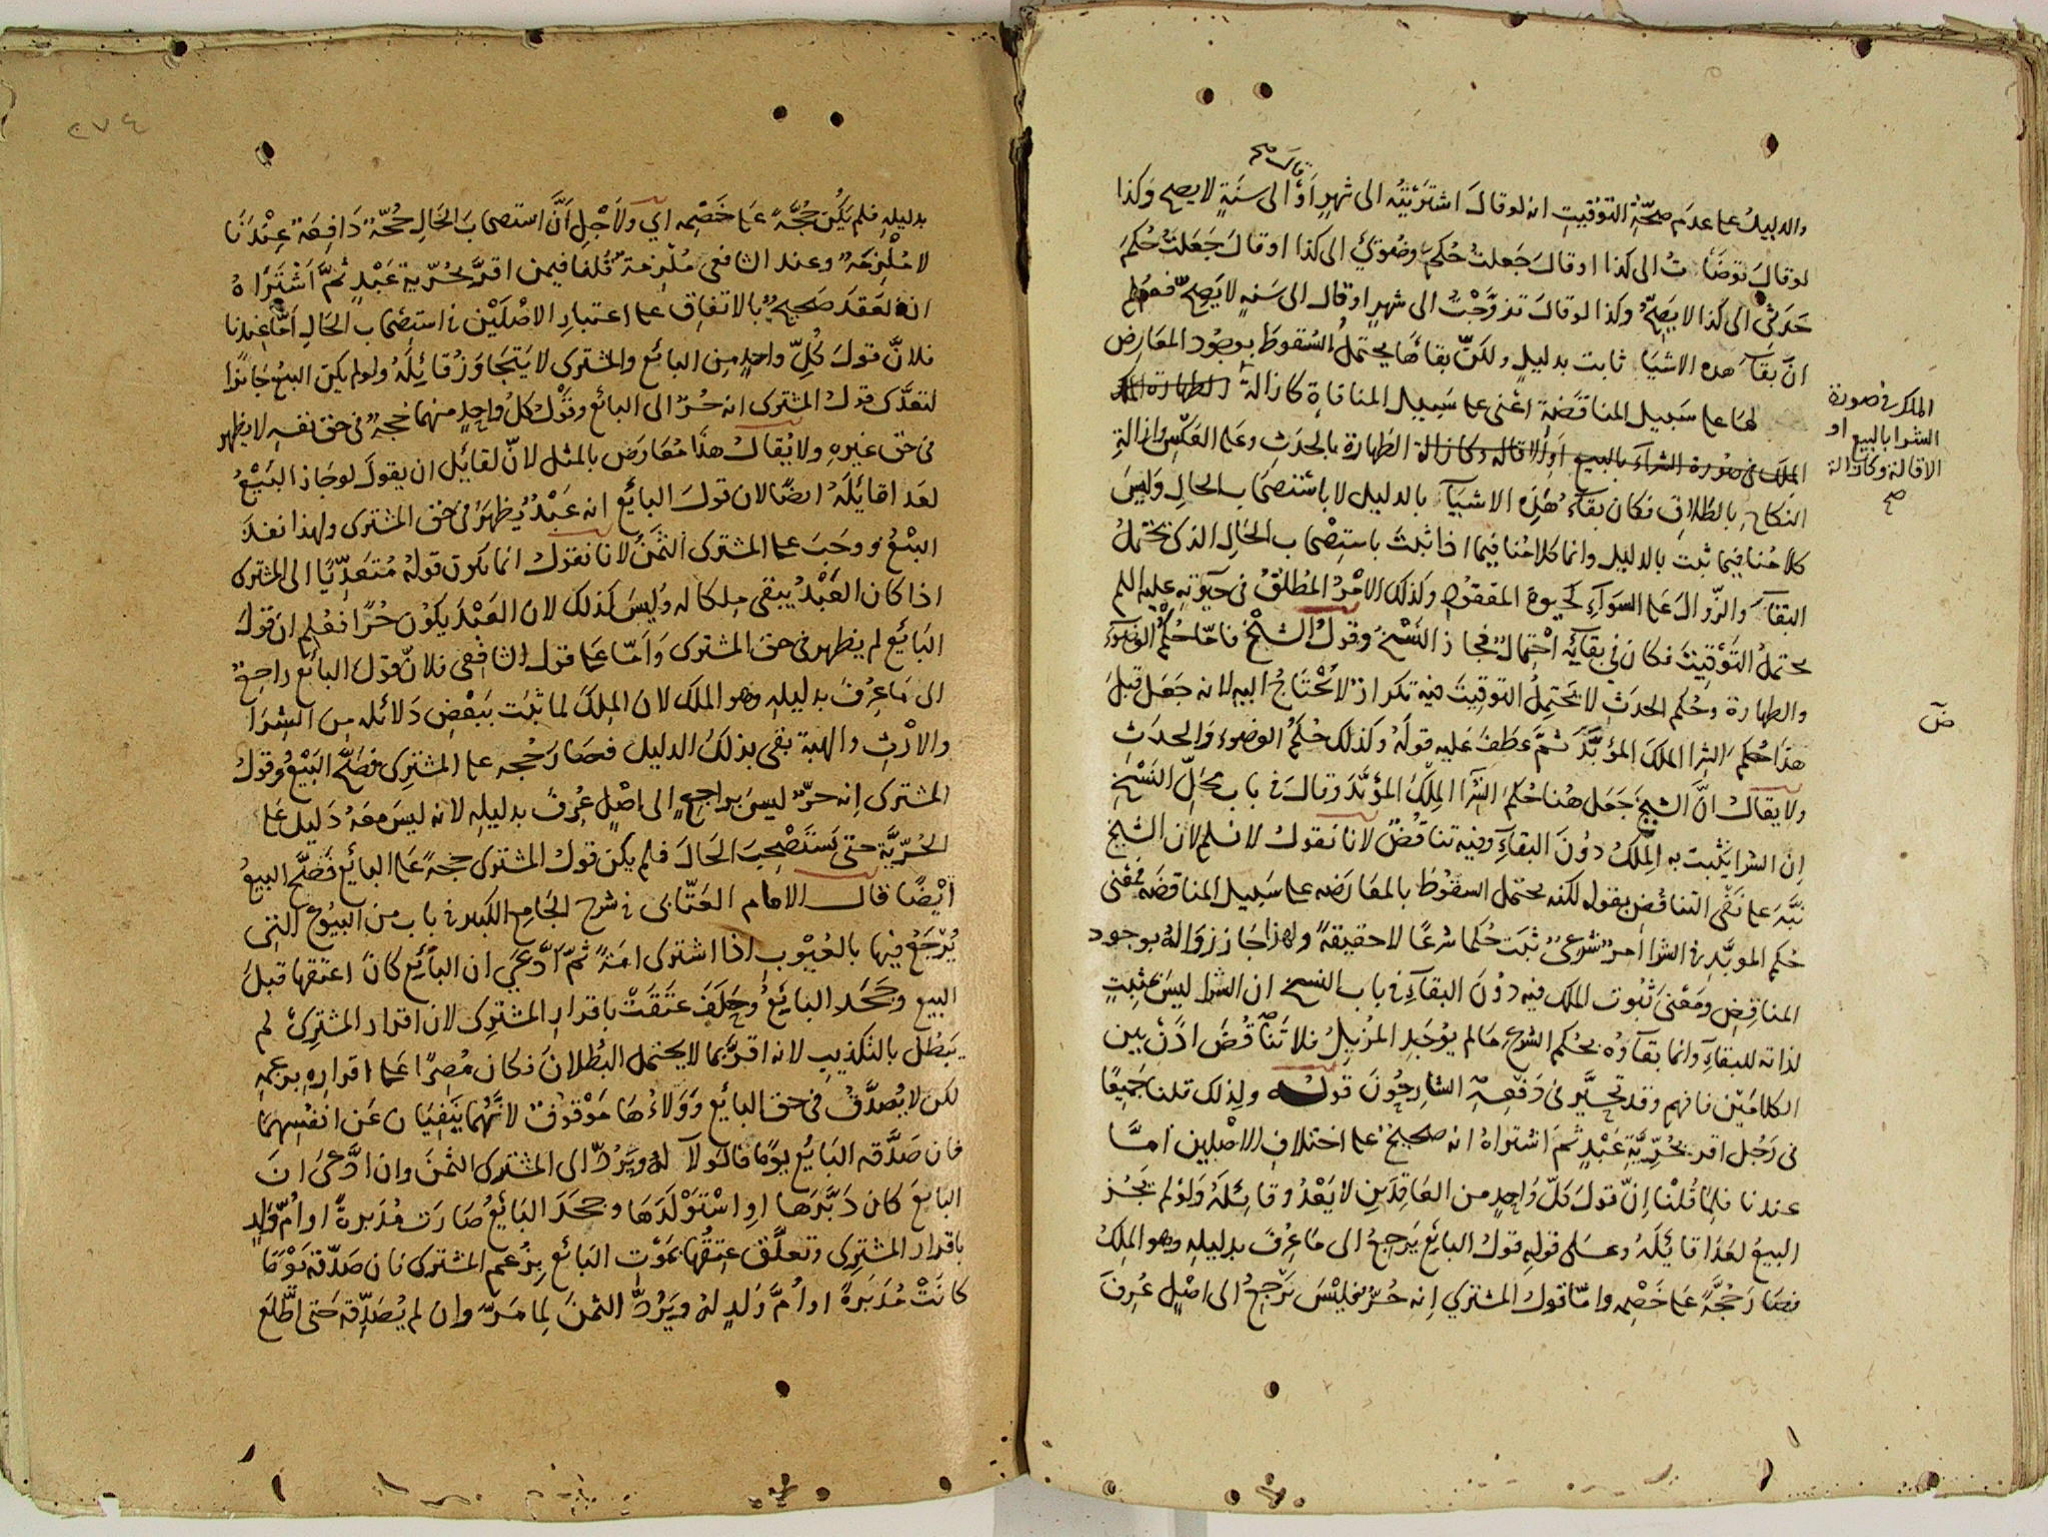 قال صح
والدليل على عدم صحة التوقيت انه لو قال اشتريته الى شهر او الى سنة لا يصح وكذا
لو قال توضأت الى كذا او قال جعلت حكم وضوئي الى كذا او قال جعلت حكم
حدثي الى كذا لا يصح وكذا لو قال تزوجت الى شهر او قال الى سنه لا يصح فعلم
ان بقآ هذه الاشيا ثابت بدليل ولكن بقاءها يحتمل السقوط بوجود المعارض
لها على سبيل المناقضة اعنى على سبيل المنافاة كازالة الطهارة
الملك فى صورة
الشرا بالبيع او
الاقالة وكازالة
صح
الملك فى صورة الشرآء بالبيع او الاقاله وكازالة الطهارة بالحدث وعلى العكس وازالة
النكاح بالطلاق فكان بقآء هذه الاشيآ بالدليل لا باستصحاب الحال وليس
كلامنا فيما ثبت بالدليل وانما كلامنا فيما اذا ثبت باستصحاب الحال الذى يحتمل
البقآ والزوال على السوآء كحيوة المفقود وكذلك الامر المطلق فى حيوته عليه السلم
يحتمل التوقيت فكان فى بقائه احتمال فجاز النسخ وقول الشيخ فاما حكم الوضوء
والطهارة وحكم الحدث لا يحتمل التوقيت فيه تكرار لا يحتاج اليه لانه جعل قبل
هذا حكم الشرا الملك المؤبد ثم عطف عليه قوله وكذلك حكم الوضوء والحدث
ض
ولا يقال ان الشيخ جعل هنا حكم الشرآ الملك المؤبد وقال فى باب محل النسخ
ان الشرا يثبت به الملك دون البقآء وفيه تناقض لانا نقول لا نسلم لان الشيخ
نبه على نفى التناقض بقوله لكنه يحتمل السقوط بالمعارضه على سبيل المناقضة فمعنى
حكم المؤبد فى الشرا امر شرعى ثبت حكما شرعا لا حقيقة ولهذا جاز زواله بوجود
المناقض ومعنى ثبوت الملك فيه دون البقآء فى باب النسخ ان الشرا ليس بمثبت
لذاته للبقاء وانما بقآؤه بحكم الشرع ما لم يوجد المزيل فلا تناقض اذن بين
الكلامين فافهم وقد تحير فى دفعه الشارحون قوله ولذلك قلنا جميعا
فى رجل اقر بحرية عبد ثم اشتراه انه صحيح على اختلاف الاصلين اما
عندنا فلما قلنا ان قول كل واحد من العاقدين لا يعدو قائله ولو لم يجز
البيع لعدا قائله وعلى قوله قول البائع يرجع الى ما عرف بدليله وهو الملك
فصار حجة على خصمه واما قول المشتري انه حر فليس يرجع الى اصل عرف
٢٧٤
بدليله فلم يكن حجة على خصمه اي ولاجل ان استصحاب الحال حجة دافعة عندنا
لا ملزمة وعند الشافعى ملزمة قلنا فيمن اقر بحرية عبد ثم اشتراه
ان العقد صحيح بالاتفاق على اعتبار الاصلين فى استصحاب الحال اما عندنا
فلان قول كل واحد من البائع والمشترى لا يتجاوز قائله ولو لم يكن البيع جائزا
لتعدى قول المشترى انه حر الى البائع وقول كل واحد منهما حجة فى حق نفسه لا يظهر
فى حق غيره ولا يقال هذا معارض بالمثل لان لقائل ان يقول لو جاز البيع
لعدا قائله ايضا لان قول البائع انه عبد يظهر فى حق المشترى ولهذا نفذ
البيع ووجب على المشترى الثمن لانا نقول انما يكون قوله متعديا الى المشترى
اذا كان العبد يبقى ملكا له وليس كذلك لان العبد يكون حرا فعلم ان قول
البائع لم يظهر فى حق المشترى واما على قول الشافعى فلان قول البائع راجع
الى ما عرف بدليله وهو الملك لان الملك لما ثبت ببعض دلائله من الشرا
والارث والهبة بقى بذلك الدليل فصار حجه على المشترى فصح البيع وقول
المشترى انه حر ليس براجع الى اصل عرف بدليله لانه ليس معه دليل على
الحرية حتى يستصحب الحال فلم يكن قول المشترى حجة على البائع فصح البيع
ايضا قال الامام العتابى فى شرح الجامع الكبير فى باب من البيوع التى
يرجع فيها بالعيوب اذا اشترى امة ثم ادعى ان البائع كان اعتقها قبل
البيع وجحد البائع وحلف عتقت باقرار المشترى لان اقرار المشترى لم
يبطل بالتكذيب لانه اقر بما لا يحتمل البطلان فكان مصرا على اقراره بزعمه
لكن لا يصدق فى حق البائع وولاءها موقوف لانهما ينفيان عن انفسهما
فان صدقه البائع يوما فالولآ له ويرد الى المشترى الثمن وان ادعى ان
البائع كان دبرها او استولدها وجحد البائع صارت مدبرة او ام ولد
باقرار المشترى وتعلق عتقها بموت البائع بزعم المشترى فان صدقه يوما
كانت مدبرة او ام ولد له ويرد الثمن لما مر وان لم يصدقه حتى اطلع